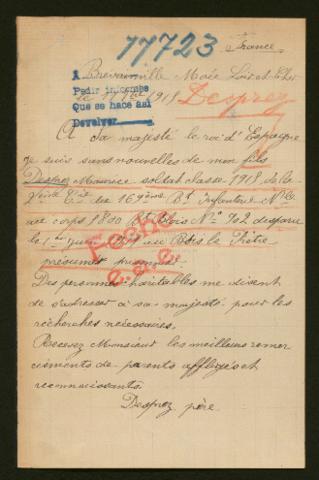 77723
France
A
Pedir informes
Que se hace así
Devolver
Brevainville Moée Loir et Cher
le 1918
Desprez
A Sa majesté le roi d'Espagne
Je suis sans nouvelles de mon fils
Desprez Maurice soldat classe 1918 de la
Cie du 169ème Bt Infanterie No
au corps 8800 Bt Blois No 902 disparu
le 1er Juin au Bois le Prêtre
présumé prisonnier
Fecho
Des personnes charitables me disent
de m'adresser à sa majesté pour les
recherches nécessaires.
Recevez Monsieur les meilleurs remer
ciments de parents affligés et
reconnaissants
Desprez père.